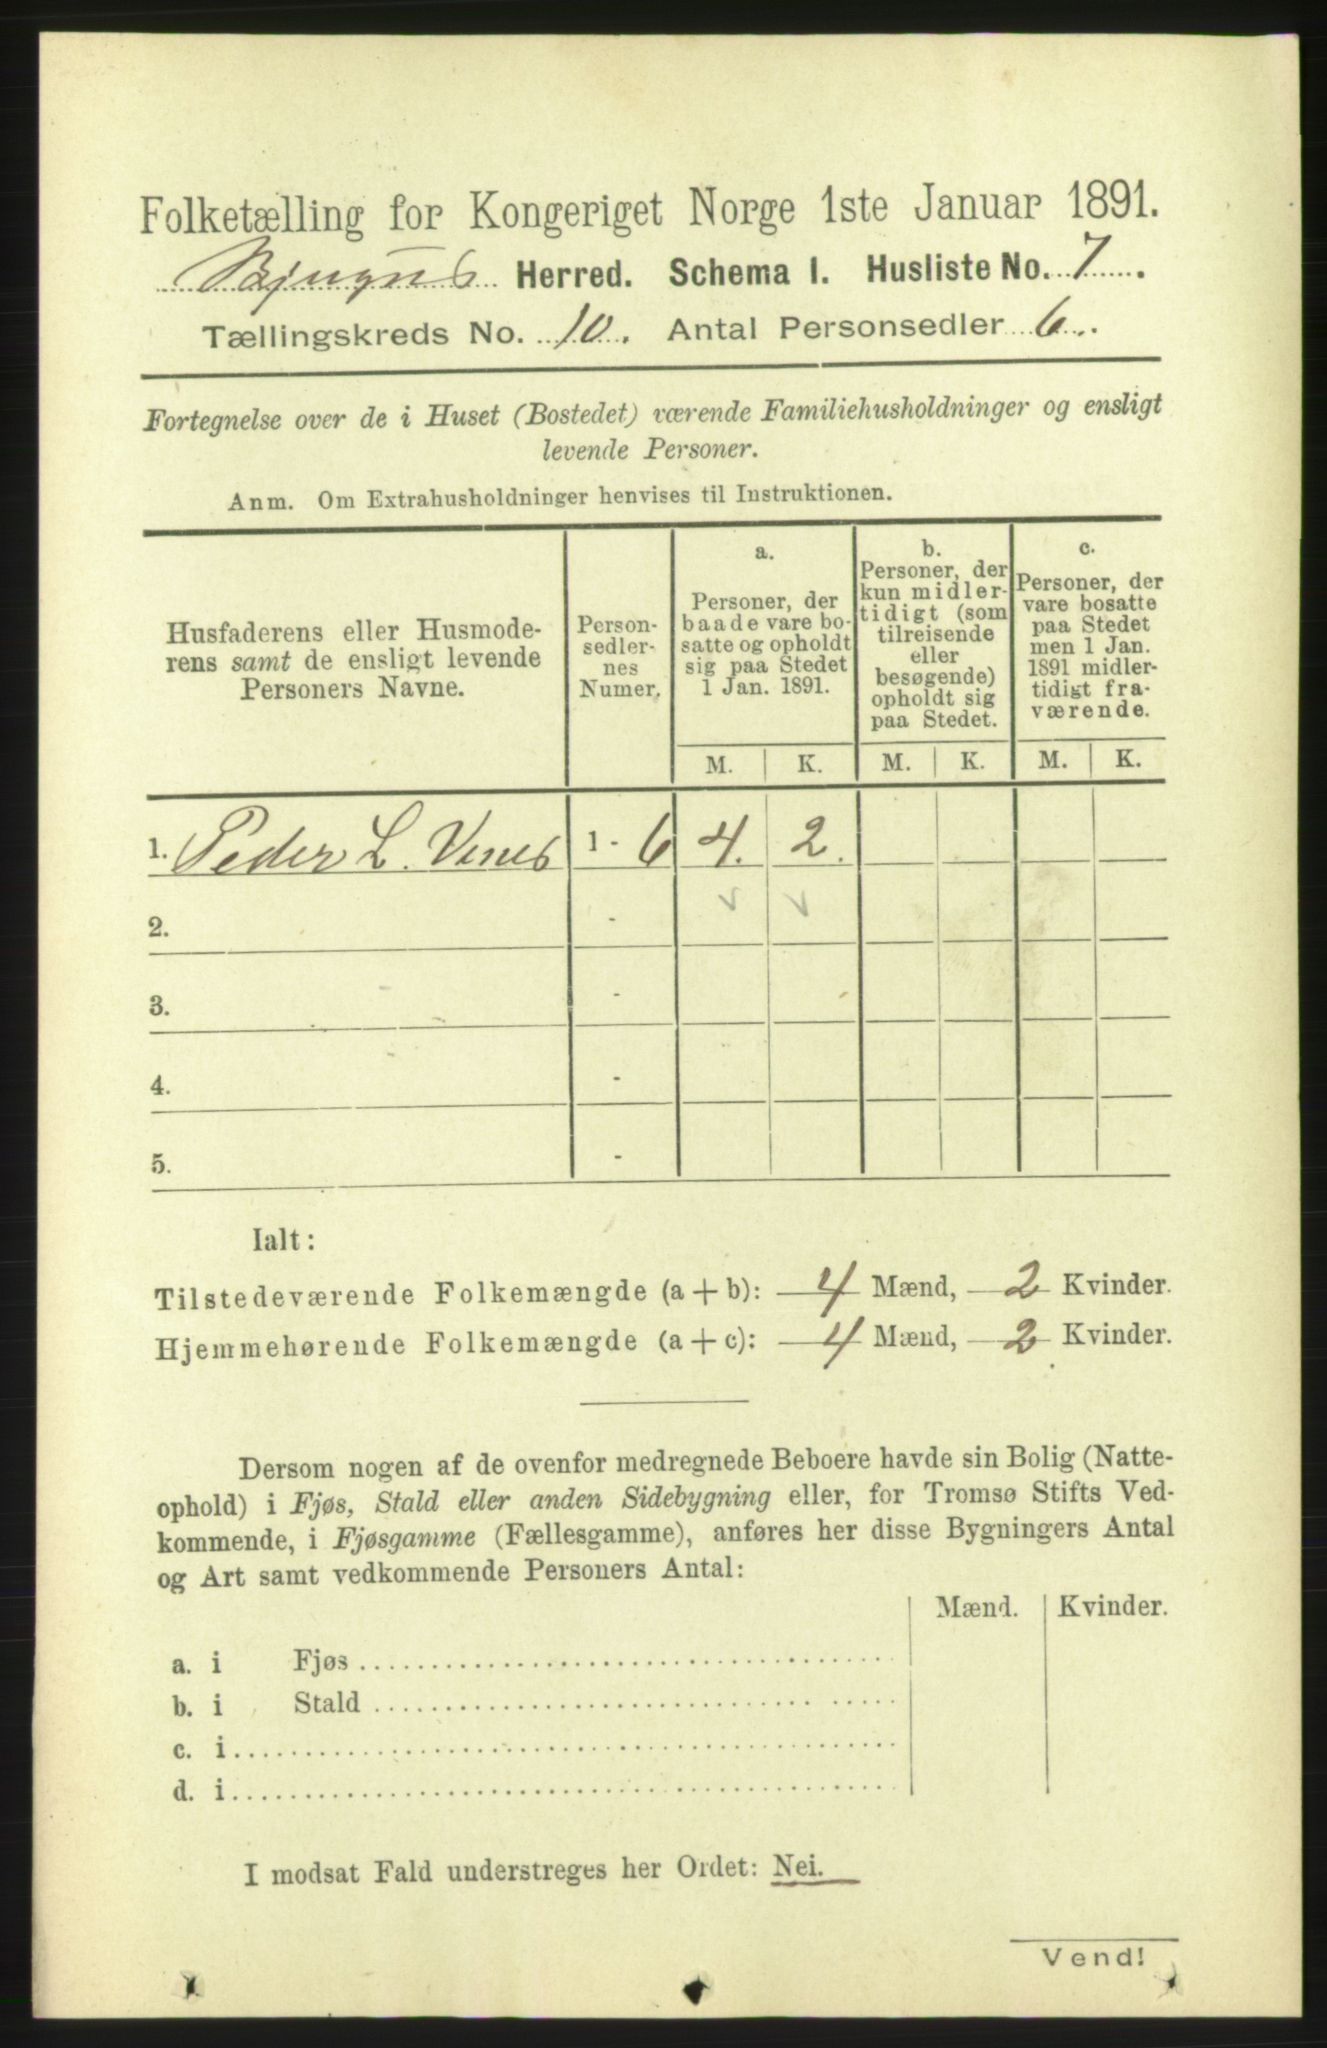 Folketælling for Kongeriget Norge 1ste Januar 1891.
Bjugns Herred. Schema I. Husliste No. 7.
Tællingskreds No. 10. Antal Personsedler 6.
Fortegnelse over de i Huset (Bostedet) værende Familiehusholdninger og ensligt
levende Personer.
Anm. Om Extrahusholdninger henvises til Instruktionen.
Husfaderens eller Husmode-
rens samt de ensligt levende
Personers Navne.
Person-
sedler-
nes
Numer.
a.
Personer, der
baade vare bo-
satte og opholdt
sig paa Stedet
1 Jan. 1891.
b.
Personer, der
kun midler-
tidigt (som
tilreisende
eller
besøgende)
opholdt sig
paa Stedet.
c.
Personer, der
vare bosatte
paa Stedet
men 1 Jan.
1891 midler-
tidigt fra-
værende.
M. K. M. K. M. K.
1. Peder L. 1 - 6 4. 2.
2. -
3. -
4. -
5. -
Ialt:
Tilstedeværende Folkemængde (a + b): 4 Mænd, 2 Kvinder.
Hjemmehørende Folkemængde (a + c): 4 Mænd, 2 Kvinder.
Dersom nogen af de ovenfor medregnede Beboere havde sin Bolig (Natte-
ophold) i Fjøs, Stald eller anden Sidebygning eller, for Tromsø Stifts Ved-
kommende, i Fjøsgamme (Fællesgamme), anføres her disse Bygningers Antal
og Art samt vedkommende Personers Antal:
Mænd. Kvinder.
a. i Fjøs
b. i Stald
c. i
d. i
I modsat Fald understreges her Ordet: Nei.
Vend!